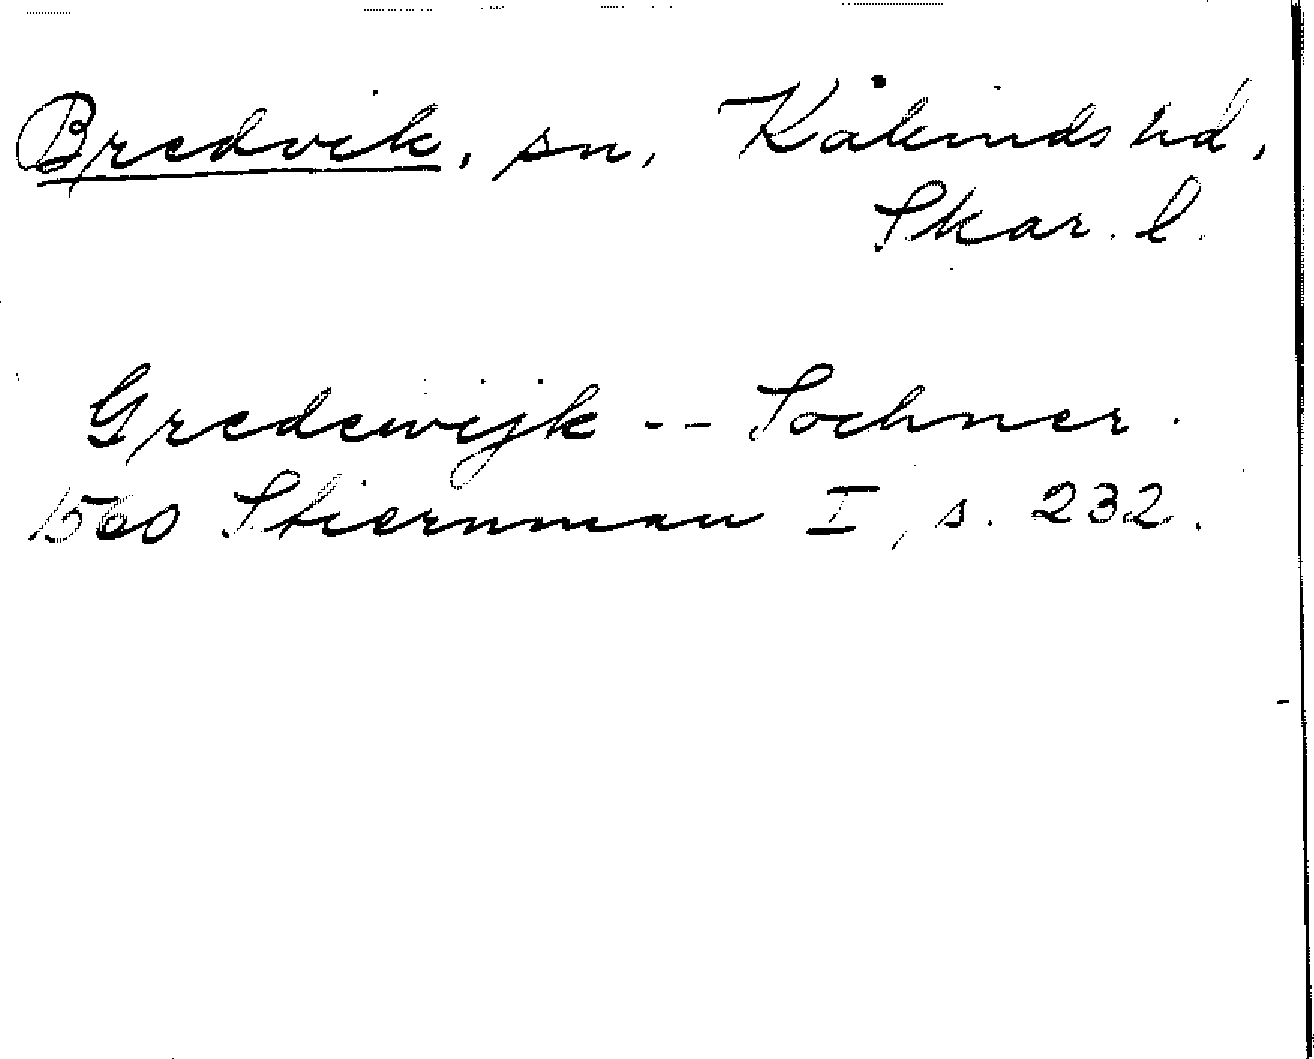 Bredvik, sn, Kåkinds hd,
Skar. l.
Gredewijk -- Sochner.
1560 Stiernman I, s. 232.